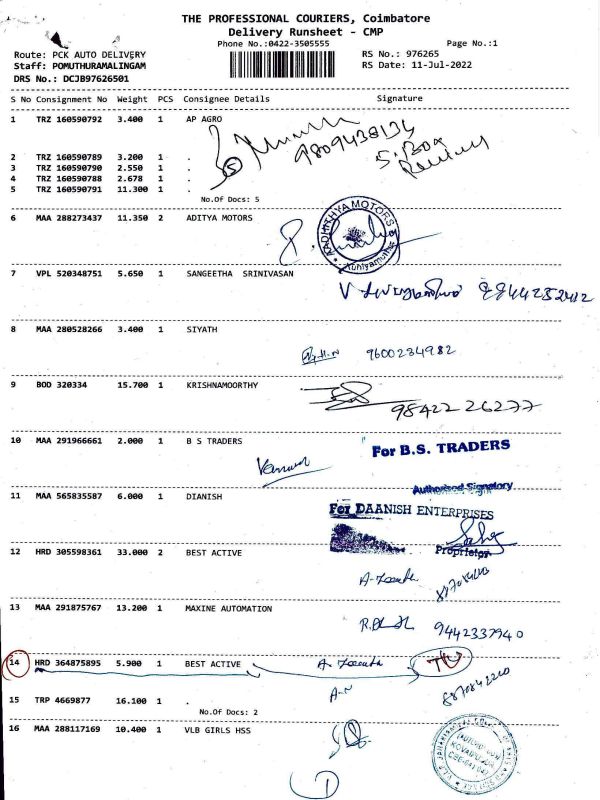 THE PROFESSIONAL COURIERS, Coimbatore
Delivery Runsheet - CMP
Phone No.:0422-3505555 Page No.:1
Route: PCK AUTO DELIVERY RS No.: 976265
Staff: POMUTHURAMALINGAM RS Date: 11-Jul-2022
DRS No.: DCJB97626501
S No Consignment No Weight PCS Consignee Details Signature
1 TRZ 160590792 3.400 1 AP AGRO
9809438134
5. Box
2 TRZ 160590789 3.200 1 .
3 TRZ 160590790 2.550 1 .
4 TRZ 160590788 2.678 1 .
5 TRZ 160590791 11.300 1 .
No.Of Docs: 5
6 MAA 288273437 11.350 2 ADITYA MOTORS
AADHITHYA MOTORS
Kuniyamuthur
7 VPL 520348751 5.650 1 SANGEETHA SRINIVASAN
9844252412
8 MAA 280528266 3.400 1 SIYATH
9600234982
9 BOD 320334 15.700 1 KRISHNAMOORTHY
98422 26277
10 MAA 291966661 2.000 1 B S TRADERS
For B.S. TRADERS
Authorised Signatory
11 MAA 565835587 6.000 1 DIANISH
For DAANISH ENTERPRISES
Proprietor
12 HRD 305598361 33.000 2 BEST ACTIVE
13 MAA 291875767 13.200 1 MAXINE AUTOMATION
9442337940
14 HRD 364875895 5.900 1 BEST ACTIVE
8870842200
15 TRP 4669877 16.100 1 .
No.Of Docs: 2
16 MAA 288117169 10.400 1 VLB GIRLS HSS